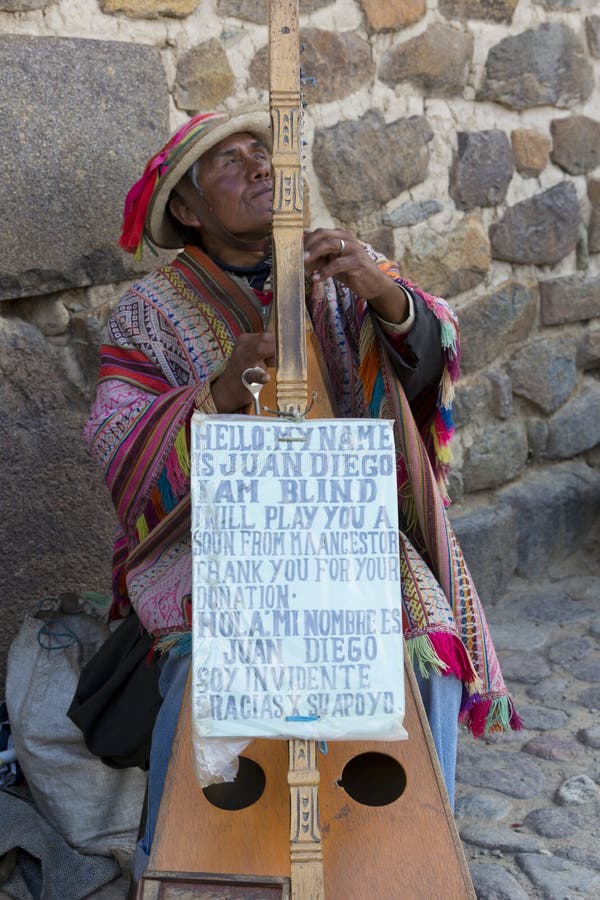 HELLO: MY NAME
IS JUAN DIEGO
I AM BLIND
I WILL PLAY YOU A
SOUN FROM MA ANCESTOR
THANK YOU FOR YOUR
DONATION.
HOLA: MI NOMBRE ES
JUAN DIEGO
SOY INVIDENTE
GRACIAS Y SU APOYO